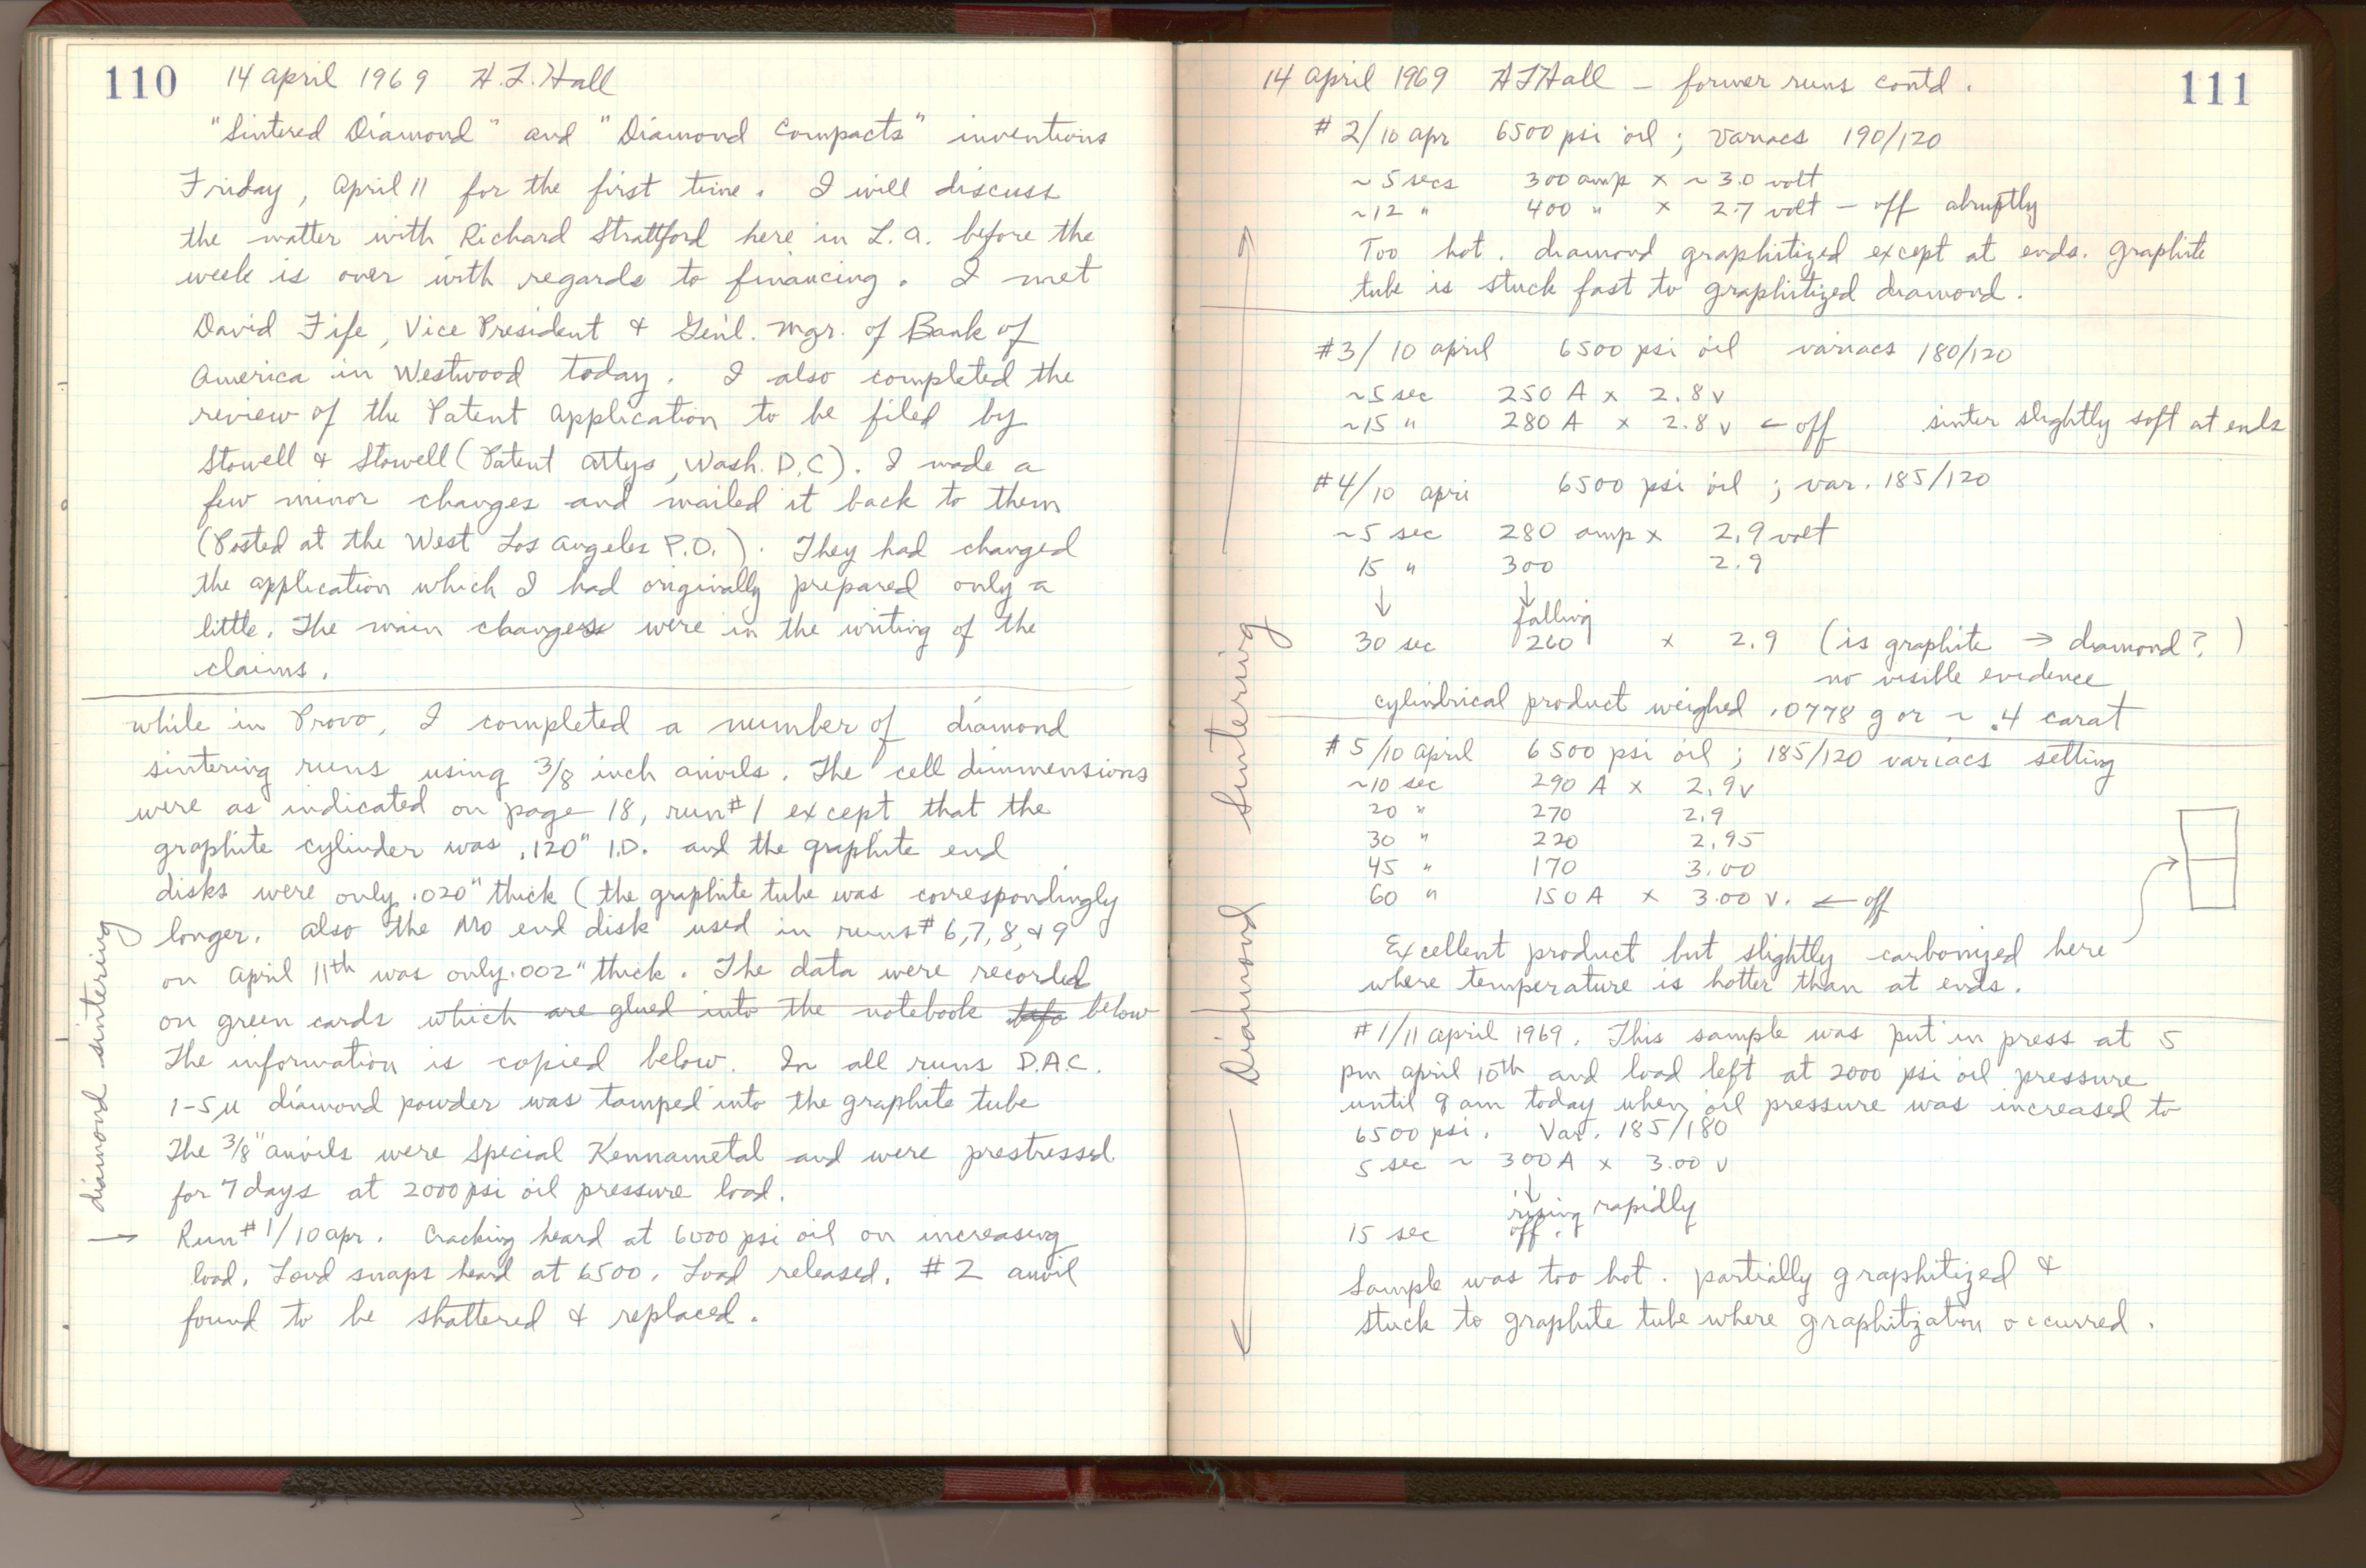 110 14 April 1969 H.T. Hall
"Sintered Diamond" and "Diamond Compacts" inventions
Friday, April 11 for the first time. I will discuss
the matter with Richard Strattford here in L.A. before the
week is over with regards to financing. I met
David Fife, Vice President & Gen'l. Mgr. of Bank of
America in Westwood today. I also completed the
review of the Patent Application to be filed by
Stowell & Stowell (Patent Attys, Wash. D.C). I made a
few minor changes and mailed it back to them
(Posted at the West Los Angeles P.O.). They had changed
the application which I had originally prepared only a
little. The main changes were in the writing of the
claims.
while in Provo, I completed a number of diamond
sintering runs using 3/8 inch anvils. The cell dimmensions
were as indicated on page 18, run #1 except that the
graphite cylinder was .120" I.D. and the graphite end
disks were only .020" thick (the graphite tube was correspondingly
longer. Also the Mo end disk used in runs # 6,7,8,&9
on April 11th was only .002" thick. The data were recorded
on green cards which are glued into the notebook below
The information is copied below. In all runs D.A.C.
1-5 µ diamond powder was tamped into the graphite tube
The 3/8" anvils were Special Kennametal and were prestressed
for 7 days at 2000 psi oil pressure load.
Run #1/10 apr. Cracking heard at 6000 psi oil on increasing
load. Loud snaps heard at 6500. Load released. #2 anvil
found to be shattered & replaced.
diamond sintering
14 April 1969 HTHall – former runs contd. 111
#2/10 apr 6500 psi oil ; Variacs 190/120
~5 secs 300 amp x ~3.0 volt
~12 " 400 " x 2.7 volt – off abruptly
Too hot. diamond graphitized except at ends. Graphite
tube is stuck fast to graphitized diamond.
#3/10 april 6500 psi oil variacs 180/120
~5 sec 250 A x 2.8 v
~15 " 280 A x 2.8 v ← off sinter slightly soft at ends
#4/10 apri 6500 psi oil ; var. 185/120
~5 sec 280 amp x 2.9 volt
15 " 300 2.9
↓ ↓
falling
30 sec 260 x 2.9 (is graphite → diamond? )
no visible evidence
cylindrical product weighed .0778 g or ~ .4 carat
#5/10 April 6500 psi oil ; 185/120 variacs setting
~10 sec 290 A x 2.9v
20 " 270 2.9
30 " 220 2.95
45 " 170 3.00
60 " 150A x 3.00 v. ← off
Excellent product but slightly carbonized here
where temperature is hotter than at ends.
#1/11 April 1969. This sample was put in press at 5
pm April 10th and load left at 2000 psi oil pressure
until 9 am today when oil pressure was increased to
6500 psi. Var. 185/180
5 sec ~ 300A x 3.00 v
↓
rising rapidly
15 sec off.
Sample was too hot. partially graphitized &
stuck to graphite tube where graphitization occurred.
Diamond Sintering